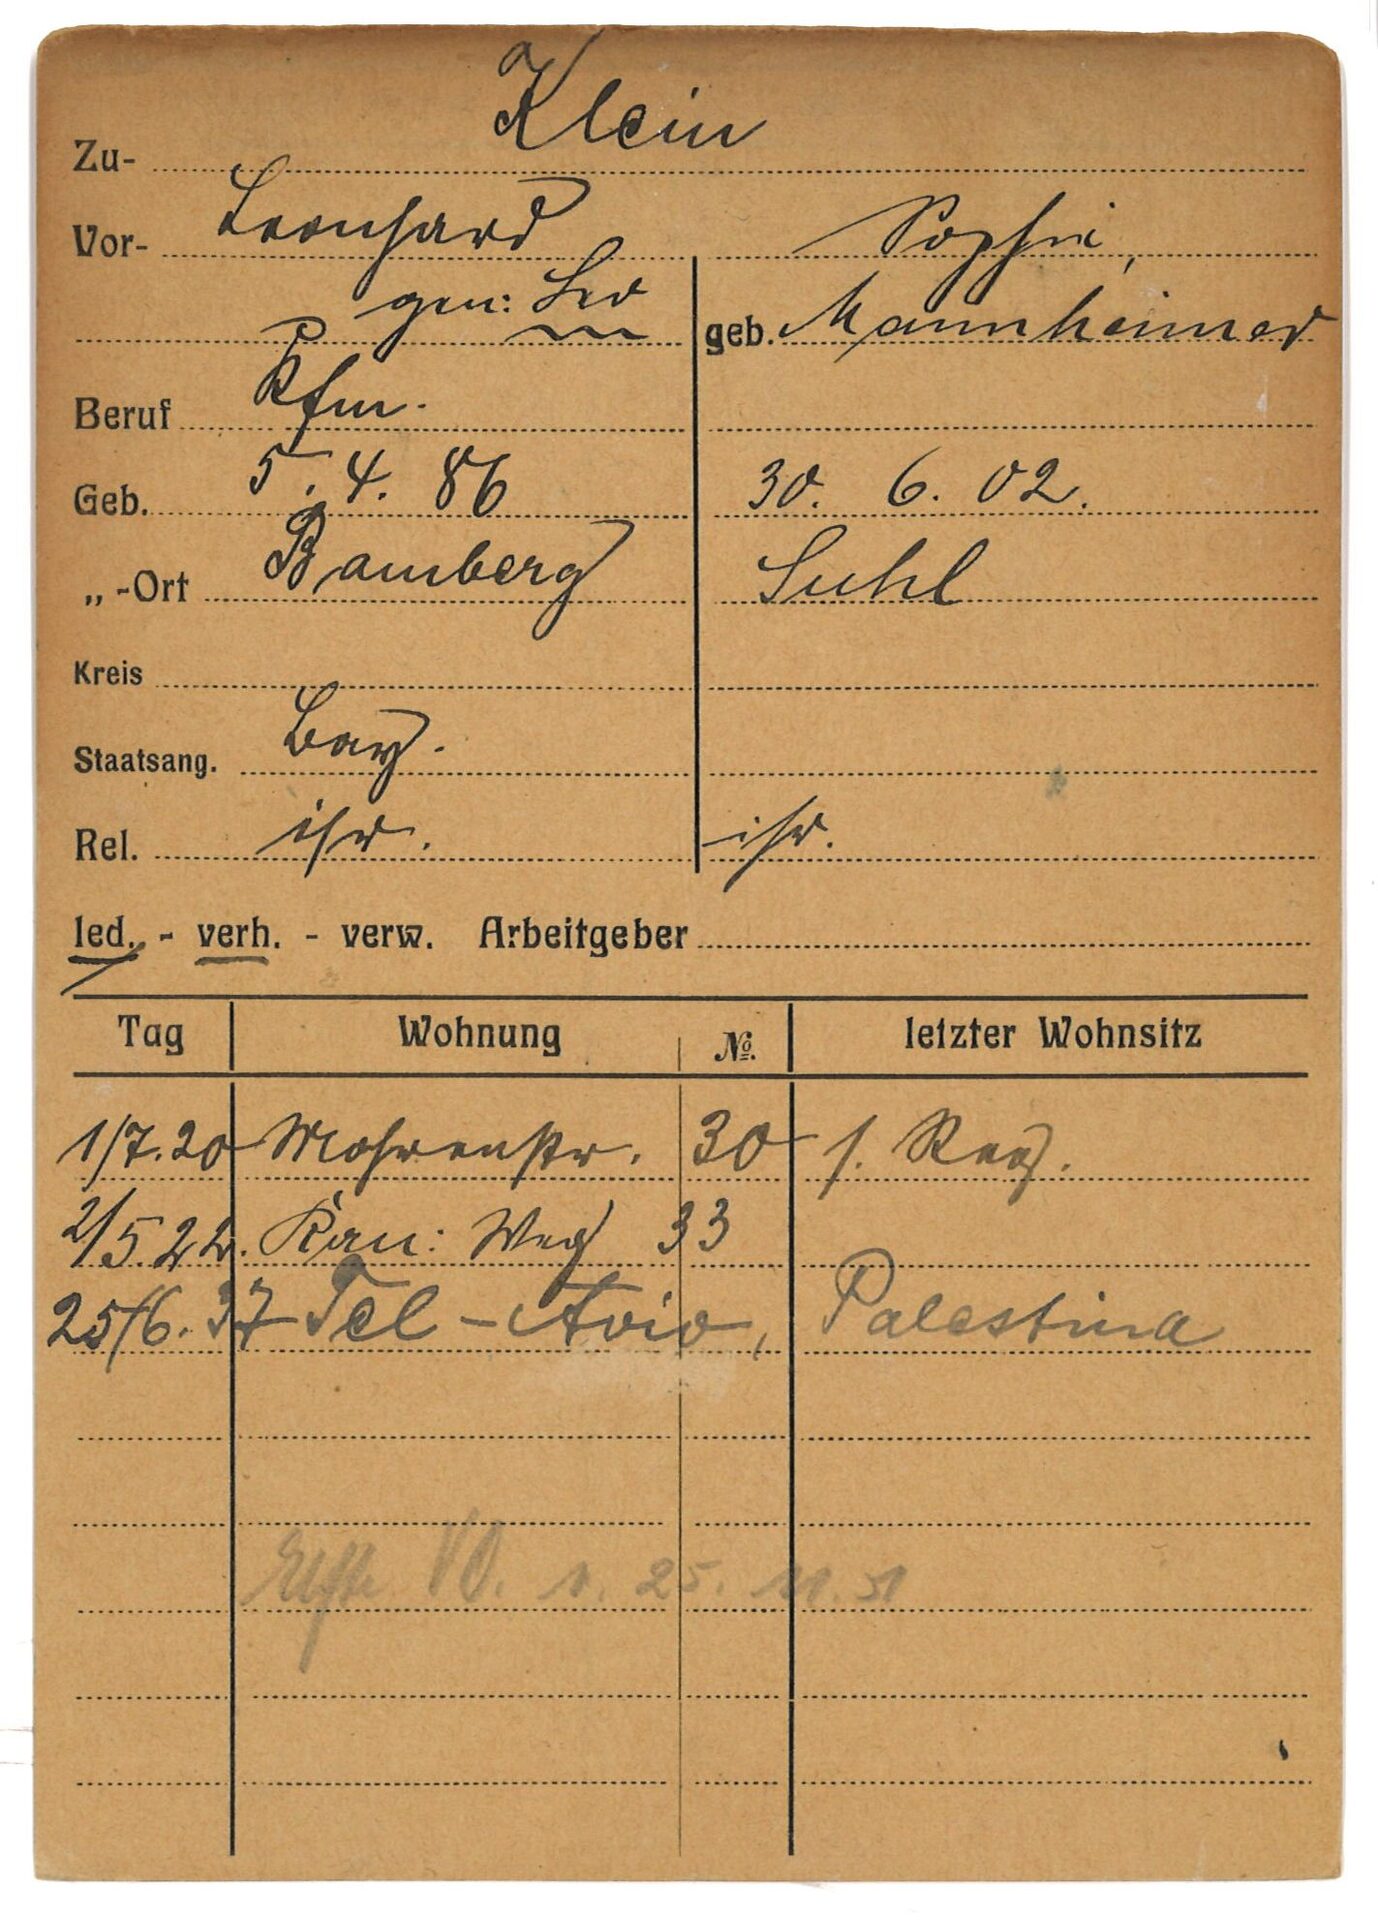 Zu- Klein
Vor- Leonhard Sophie,
gen: Leo geb. Mannheimer
Beruf Kfm.
Geb. 5. 4. 86 30. 6. 02.
„-Ort Bamberg Suhl
Kreis
Staatsang. Bay.
Rel. isr. isr.
led. - verh. - verw. Arbeitgeber
Tag Wohnung No. letzter Wohnsitz
1/7.20 Mohrenstr. 30 f. Reg.
2/5.22. Kan: Weg 33
25/6.37 Tel-Aviv, Palestina
Elfte VO. v. 25. 11. 51